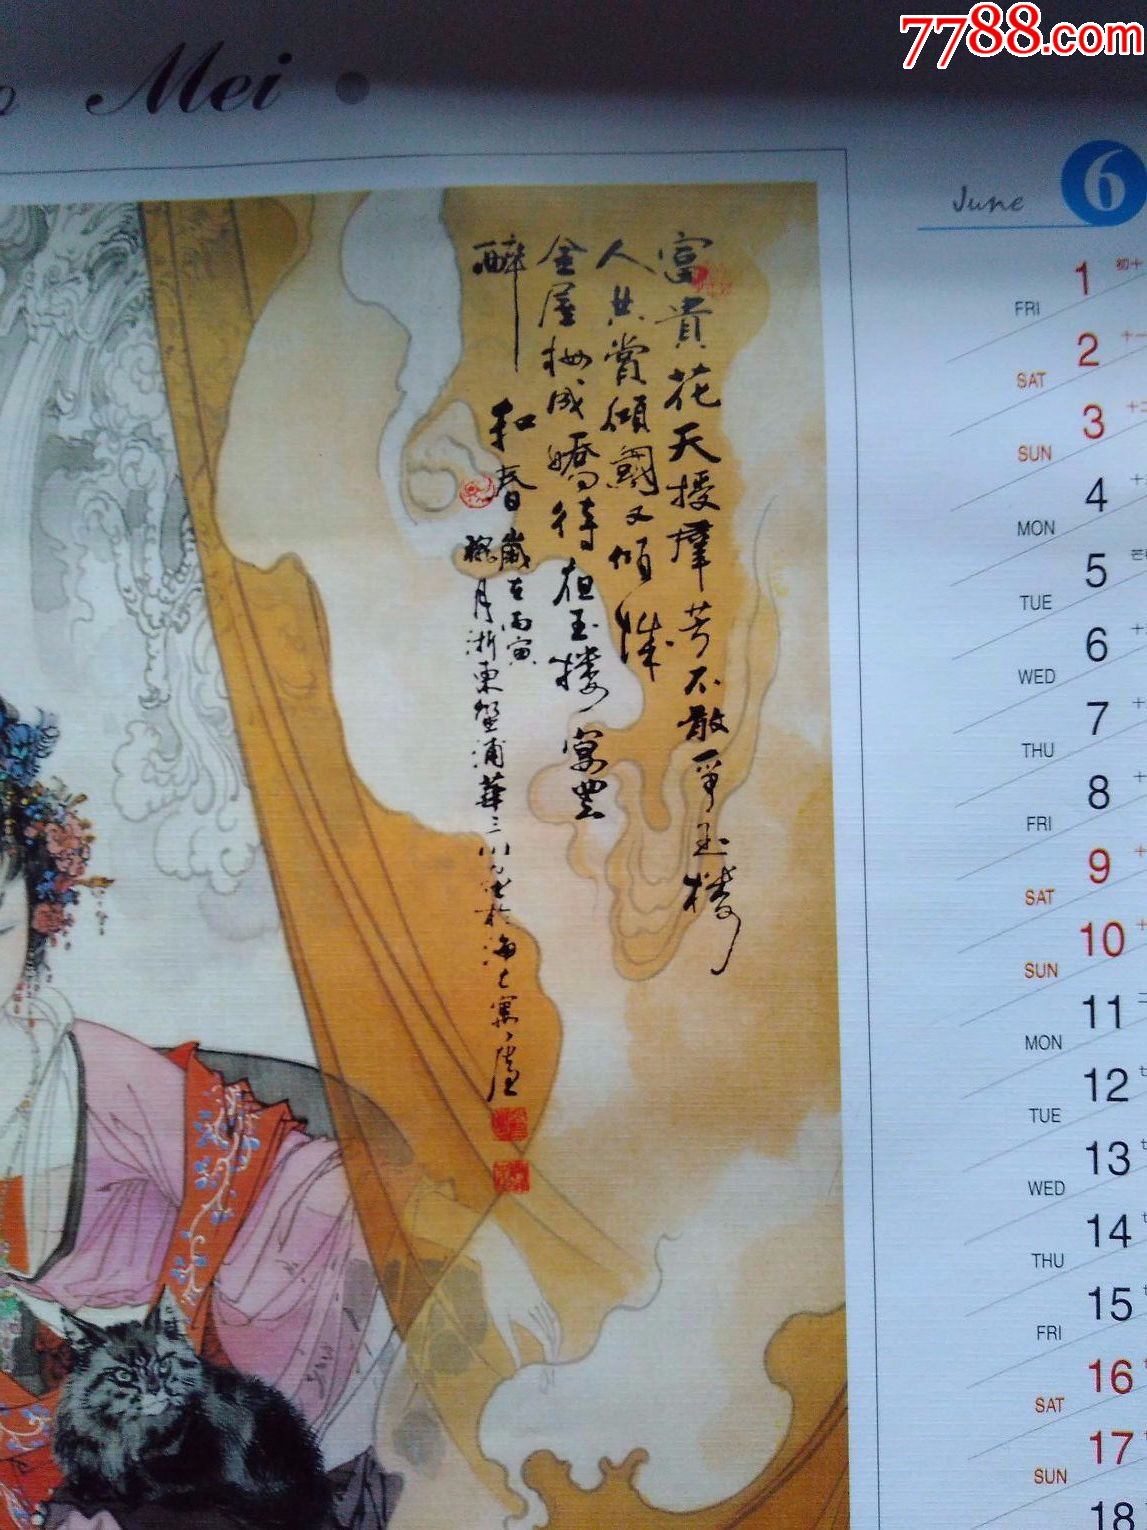 7788.com
Mei
June 6
富貴花天授群芳不敢爭玉樓
人共賞傾國又傾城
金屋妝成嬌待在玉樓宴豐
醉和春
歲在丙寅
槐月浙東蟹浦華三川畫於海上寓廬
1 初十
FRI
2 十一
SAT
3
SUN
4
MON
5
TUE
6
WED
7
THU
8
FRI
9
SAT
10
SUN
11
MON
12
TUE
13
WED
14
THU
15
FRI
16
SAT
17
SUN
18